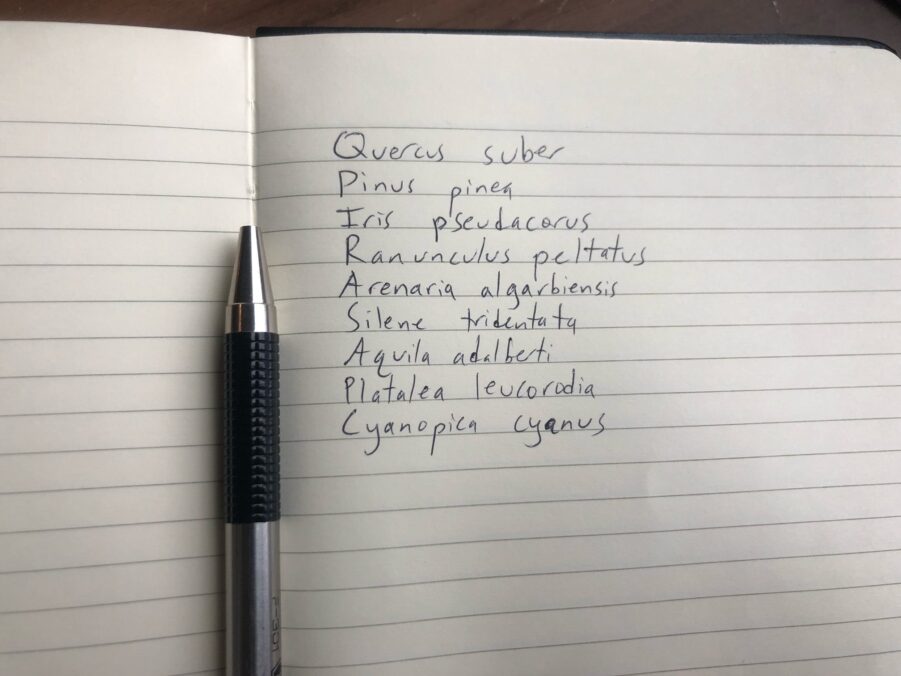 Quercus suber
Pinus pinea
Iris pseudacorus
Ranunculus peltatus
Arenaria algarbiensis
Silene tridentata
Aquila adalberti
Platalea leucorodia
Cyanopica cyanus